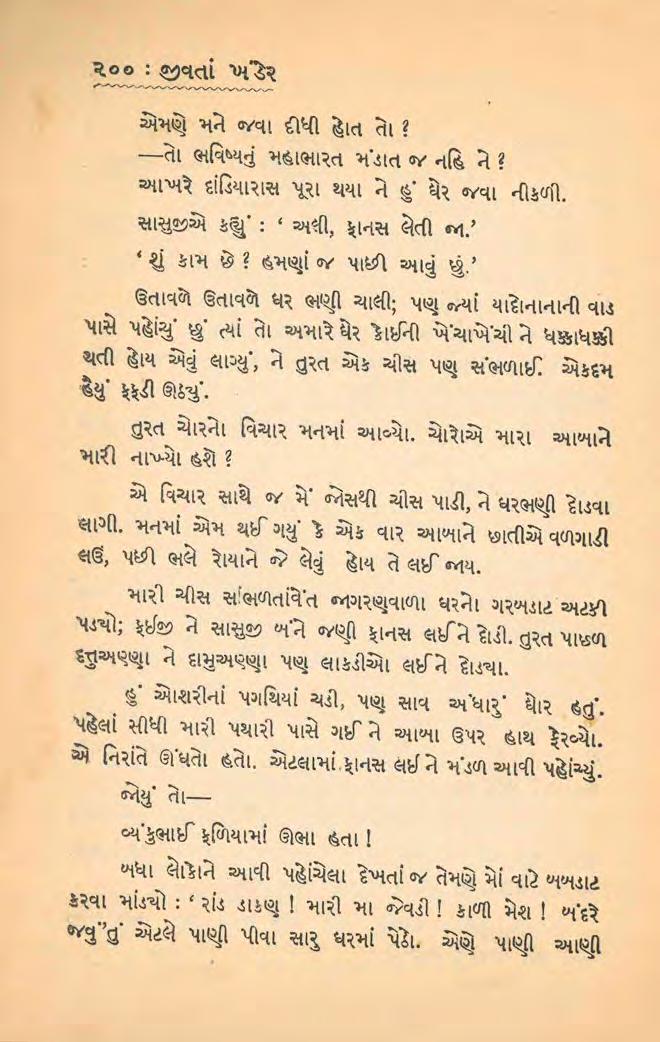 ૨૦૦ : જીવતાં ખંડેર
એમણે મને જવા દીધી હોત તો ?
—તો ભવિષ્યનું મહાભારત મંડાત જ નહિ ને ?
આખરે દાંડિયારાસ પૂરા થયા ને હું ઘેર જવા નીકળી.
સાસુજીએ કહ્યું : ‘ અલી, ફાનસ લેતી જા.’
‘ શું કામ છે ? હમણાં જ પાછી આવું છું.’
ઉતાવળે ઉતાવળે ઘર ભણી ચાલી; પણ જ્યાં યાદોનાનાની વાડ
પાસે પહોંચું છું ત્યાં તો અમારે ઘેર કોઈની ખેંચાખેંચી ને ધક્કાધક્કી
થતી હોય એવું લાગ્યું, ને તુરત એક ચીસ પણ સંભળાઈ. એકદમ
હૈયું ફફડી ઊઠ્યું.
તુરત ચોરનો વિચાર મનમાં આવ્યો. ચોરોએ મારા આબાને
મારી નાખ્યો હશે ?
એ વિચાર સાથે જ મેં જોસથી ચીસ પાડી, ને ઘરભણી દોડવા
લાગી. મનમાં એમ થઈ ગયું કે એક વાર આબાને છાતીએ વળગાડી
લઉં, પછી ભલે રોયાને જે લેવું હોય તે લઈ જાય.
મારી ચીસ સાંભળતાંવેંત જાગરણવાળા ઘરનો ગરબડાટ અટકી
પડ્યો; ફઈજી ને સાસુજી બંને જણી ફાનસ લઈને દોડી. તુરત પાછળ
દત્તુઅણ્ણા ને દામુઅણ્ણા પણ લાકડીઓ લઈને દોડ્યા.
હું ઓશરીનાં પગથિયાં ચડી, પણ સાવ અંધારું ઘોર હતું.
પહેલાં સીધી મારી પથારી પાસે ગઈ ને આબા ઉપર હાથ ફેરવ્યો.
એ નિરાંતે ઊંઘતો હતો. એટલામાં ફાનસ લઈને મંડળ આવી પહોંચ્યું.
જોયું તો—
વ્યંકુભાઈ ફળિયામાં ઊભા હતા !
બધા લોકોને આવી પહોંચેલા દેખતાં જ તેમણે મોં વાટે બબડાટ
કરવા માંડ્યો : ‘ રાંડ ડાકણ ! મારી મા જેવડી ! કાળી મેશ ! બંદરે
જવું’તું એટલે પાણી પીવા સારુ ઘરમાં પેઠો. એણે પાણી આણી